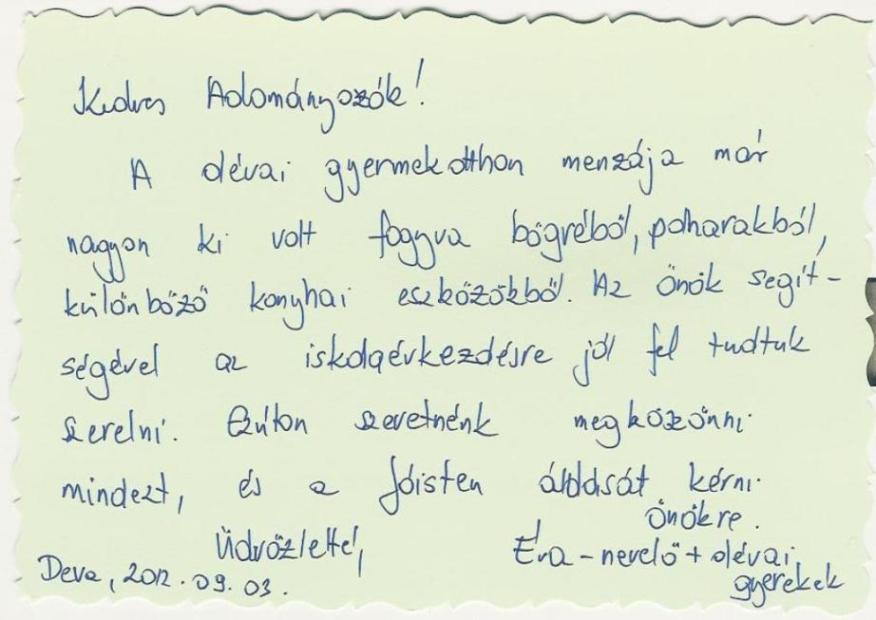 Kedves Adományozók!
A dévai gyermekotthon menzája már
nagyon ki volt fogyva bögréből, poharakból,
különböző konyhai eszközökből. Az Önök segít-
ségével az iskolaévkezdésre jól fel tudtuk
szerelni. Ezúton szeretnénk megköszönni
mindezt, és a Jóisten áldását kérni
Önökre.
Üdvözlettel,
Éva - nevelő + dévai
gyerekek
Deva, 2012. 09. 03.